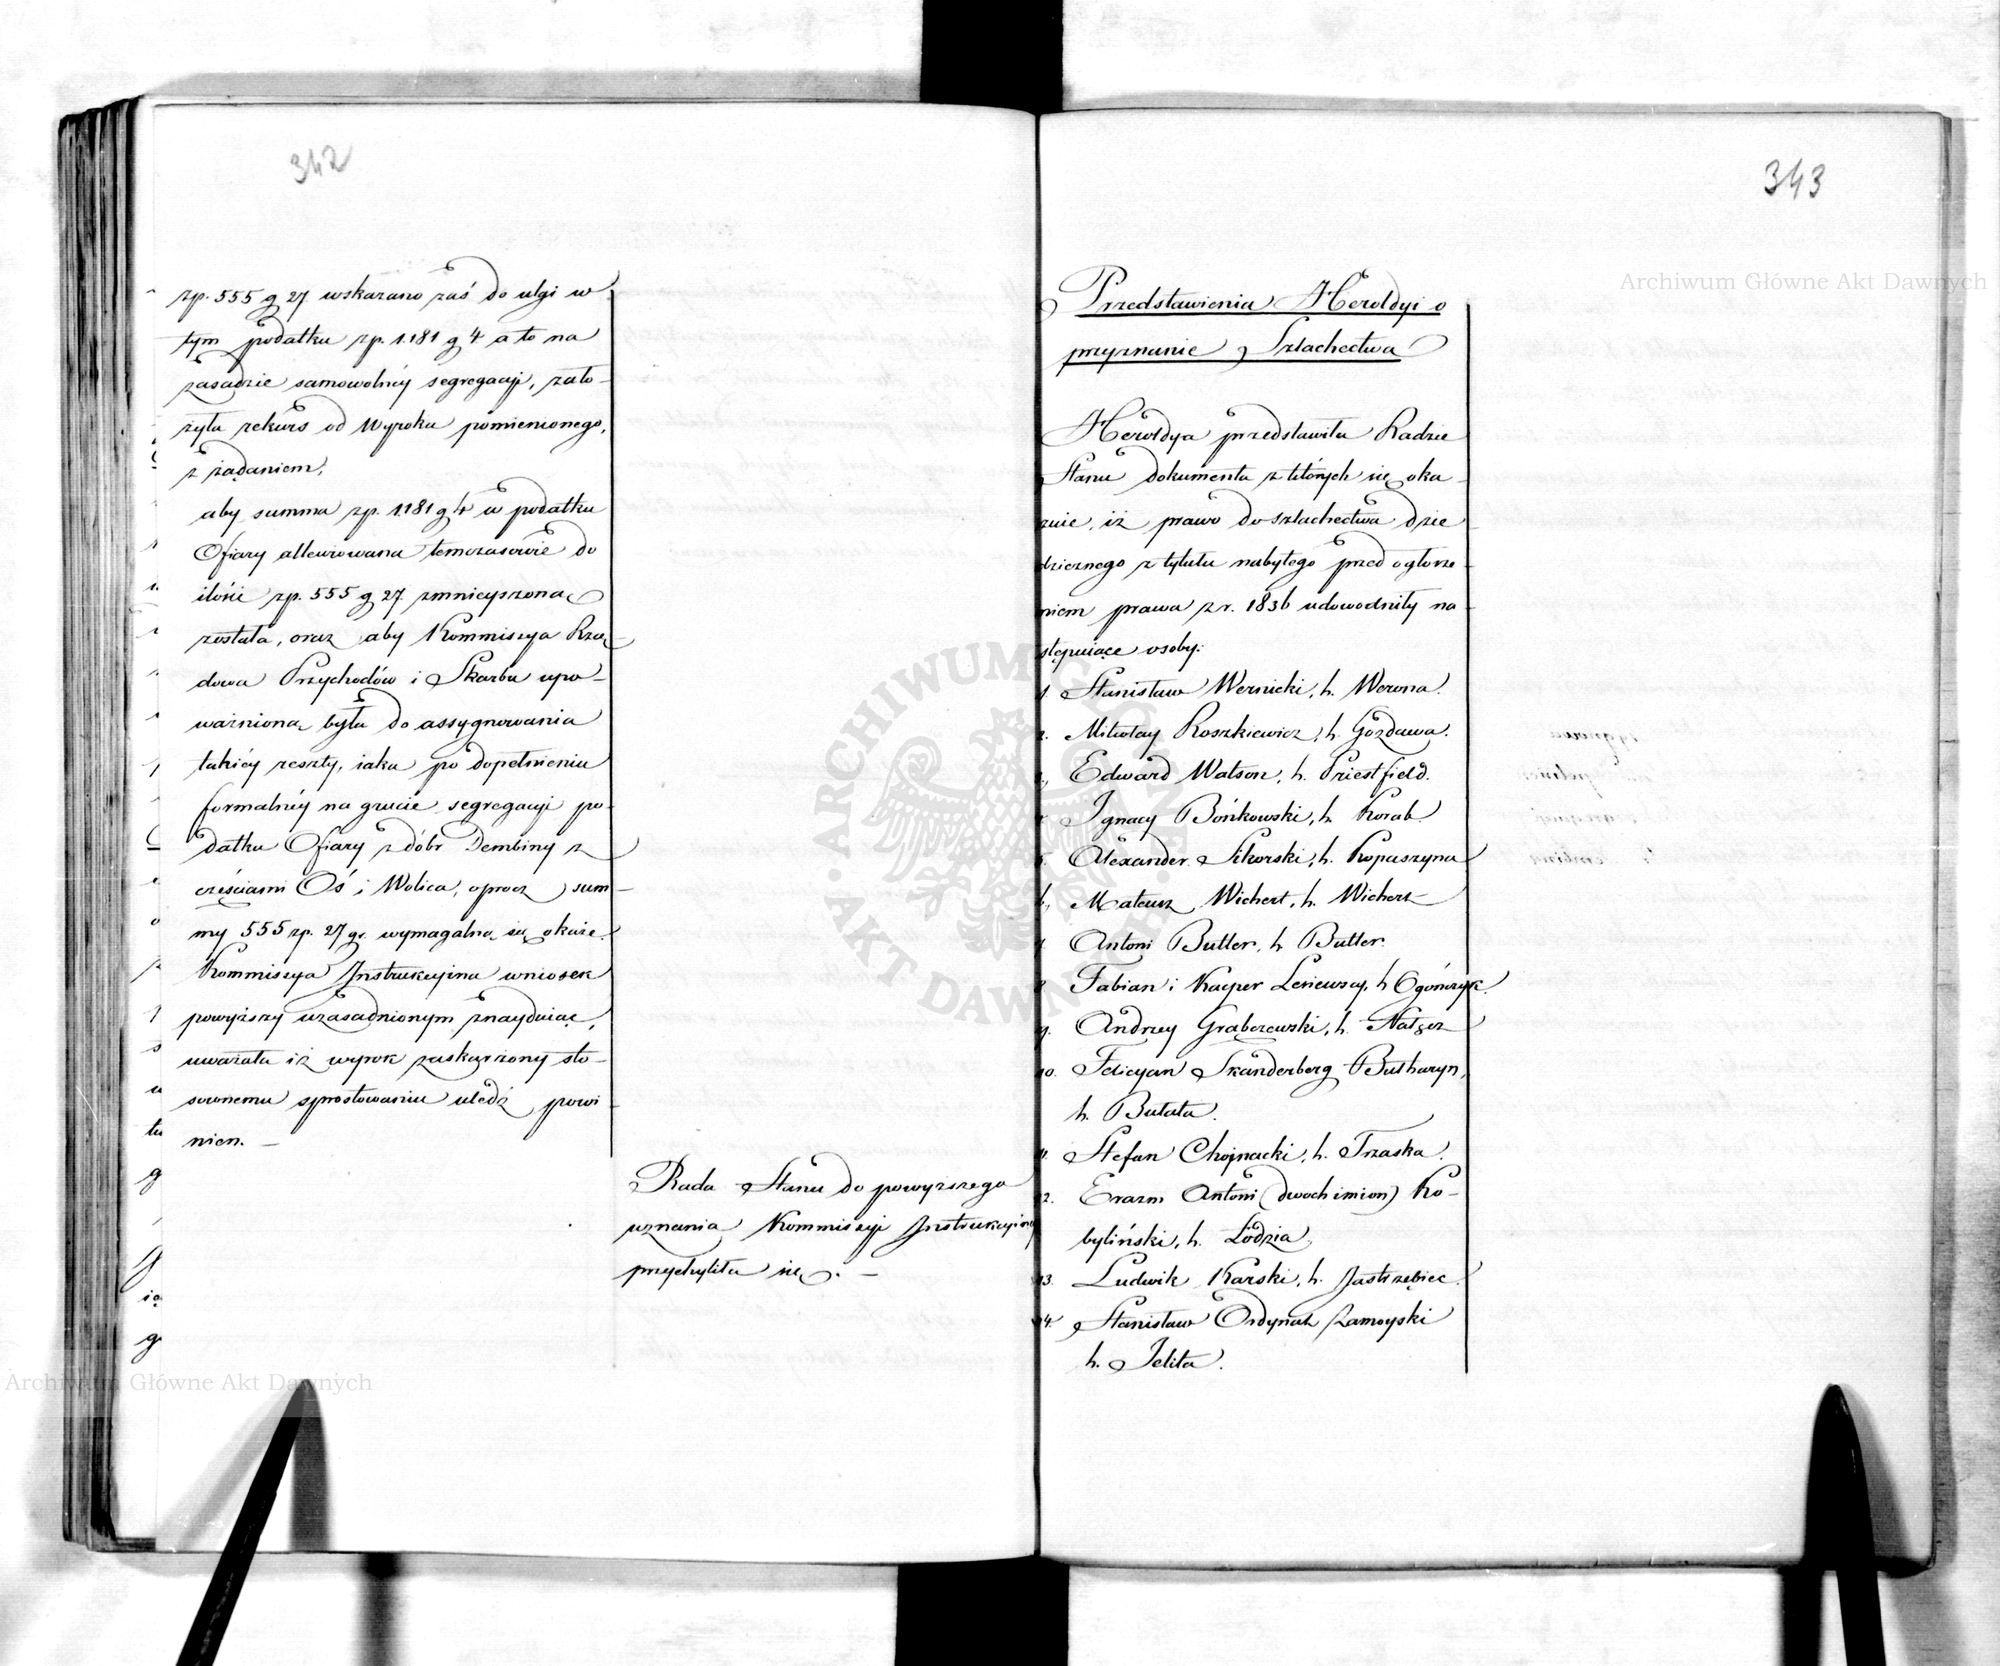 342
zp. 555 g 27 wskazano zaś do ulgi w
tym podatku zp. 1.181 g 4 a to na
zasadzie samowolnéy segregacyi, zało-
żyła rekurs od Wyroku pomienionego,
z żądaniem,
aby summa zp. 1.181 g 4 w podatku
Ofiary allewiowana temczasowie do
ilości zp. 555 g 27 zmnieyszoną
została, oraz aby Kommissya Rzą-
dowa Przychodów i Skarbu upo-
ważnioną była do assygnowania
takiéy reszty, iaka po dopełnieniu
formalnéy na grucie segregacyi po-
datku Ofiary z dóbr Dembiny z
częściami Oś i Wolica, oprócz sum-
my 555 zp. 27 gr. wymagalną się okaże.
Kommissya Instrukcyjna wniosek
powyższy uzasadnionym znayduiąc,
uważała iż wyrok zaskarżony sto-
sownemu sprostowaniu uledz powi-
nien. —
Rada Stanu do powyższego
uznania Kommissyi Instrukcyiney
przychyliła się. —
343
Przedstawienia Heroldyi o
przyznanie Szlachectwa
Heroldya przedstawiła Radzie
Stanu dokumenta z których się oka-
zuie, iż prawo do szlachectwa dzie-
dzicznego z tytułu nabytego przed ogłosze-
niem prawa z r. 1836 udowodniły na-
stępuiące osoby:
1. Stanisław Wernicki, h. Werona.
2. Mikołay Roszkiewicz, h. Gozdawa.
3. Edward Watson, h. Priestfield.
4. Ignacy Bońkowski, h. Korab.
5. Alexander Sikorski, h. Kopaszyna
6. Mateusz Wichert, h. Wichert
7. Antoni Butler, h. Butler.
8. Fabian i Kacper Leniewscy, h Ogończyk.
9. Andrzey Grabczewski, h. Nałęcz
10. Felicyan Skanderberg Butharyn,
h. Butata.
11. Stefan Chojnacki, h. Trzaska.
12. Erazm Antoni (dwoch imion) Ko-
byliński, h. Łodzia.
13. Ludwik Karski, h. Jastrzębiec.
14. Stanisław Ordynat Zamoyski
h. Jelita.
Archiwum Główne Akt Dawnych
ARCHIWUM GŁÓWNE · AKT DAWNYCH ·
Archiwum Główne Akt Dawnych